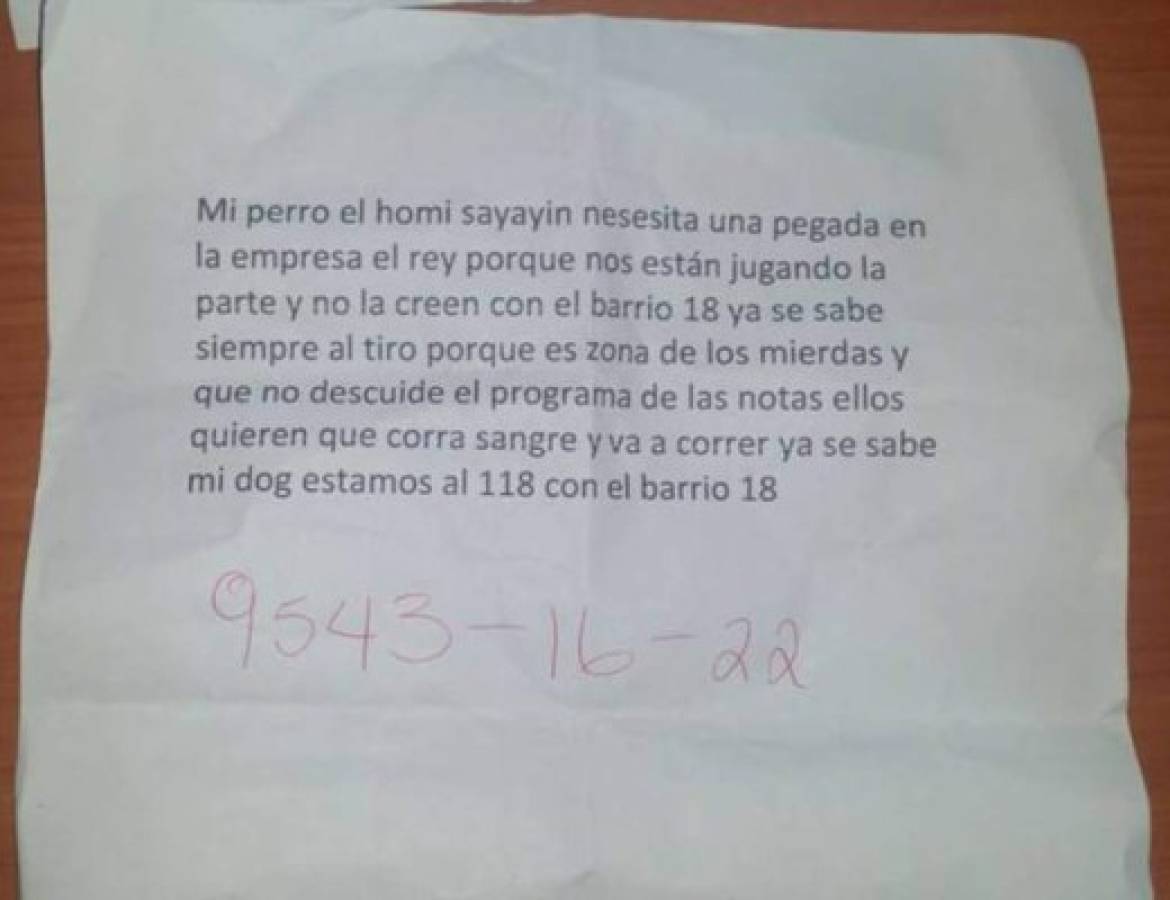 Mi perro el homi sayayin nesesita una pegada en
la empresa el rey porque nos están jugando la
parte y no la creen con el barrio 18 ya se sabe
siempre al tiro porque es zona de los mierdas y
que no descuide el programa de las notas ellos
quieren que corra sangre y va a correr ya se sabe
mi dog estamos al 118 con el barrio 18
9543-16-22